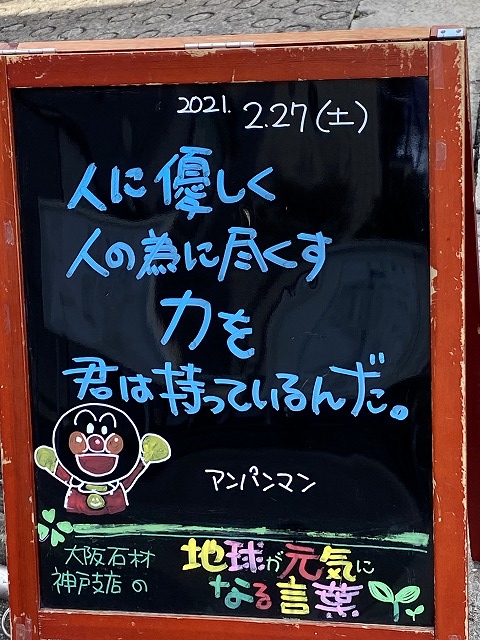 2021. 2.27(土)
人に優しく
人の為に尽くす
力を
君は持っているんだ。
アンパンマン
大阪石材
神戸支店の
地球が元気に
なる言葉